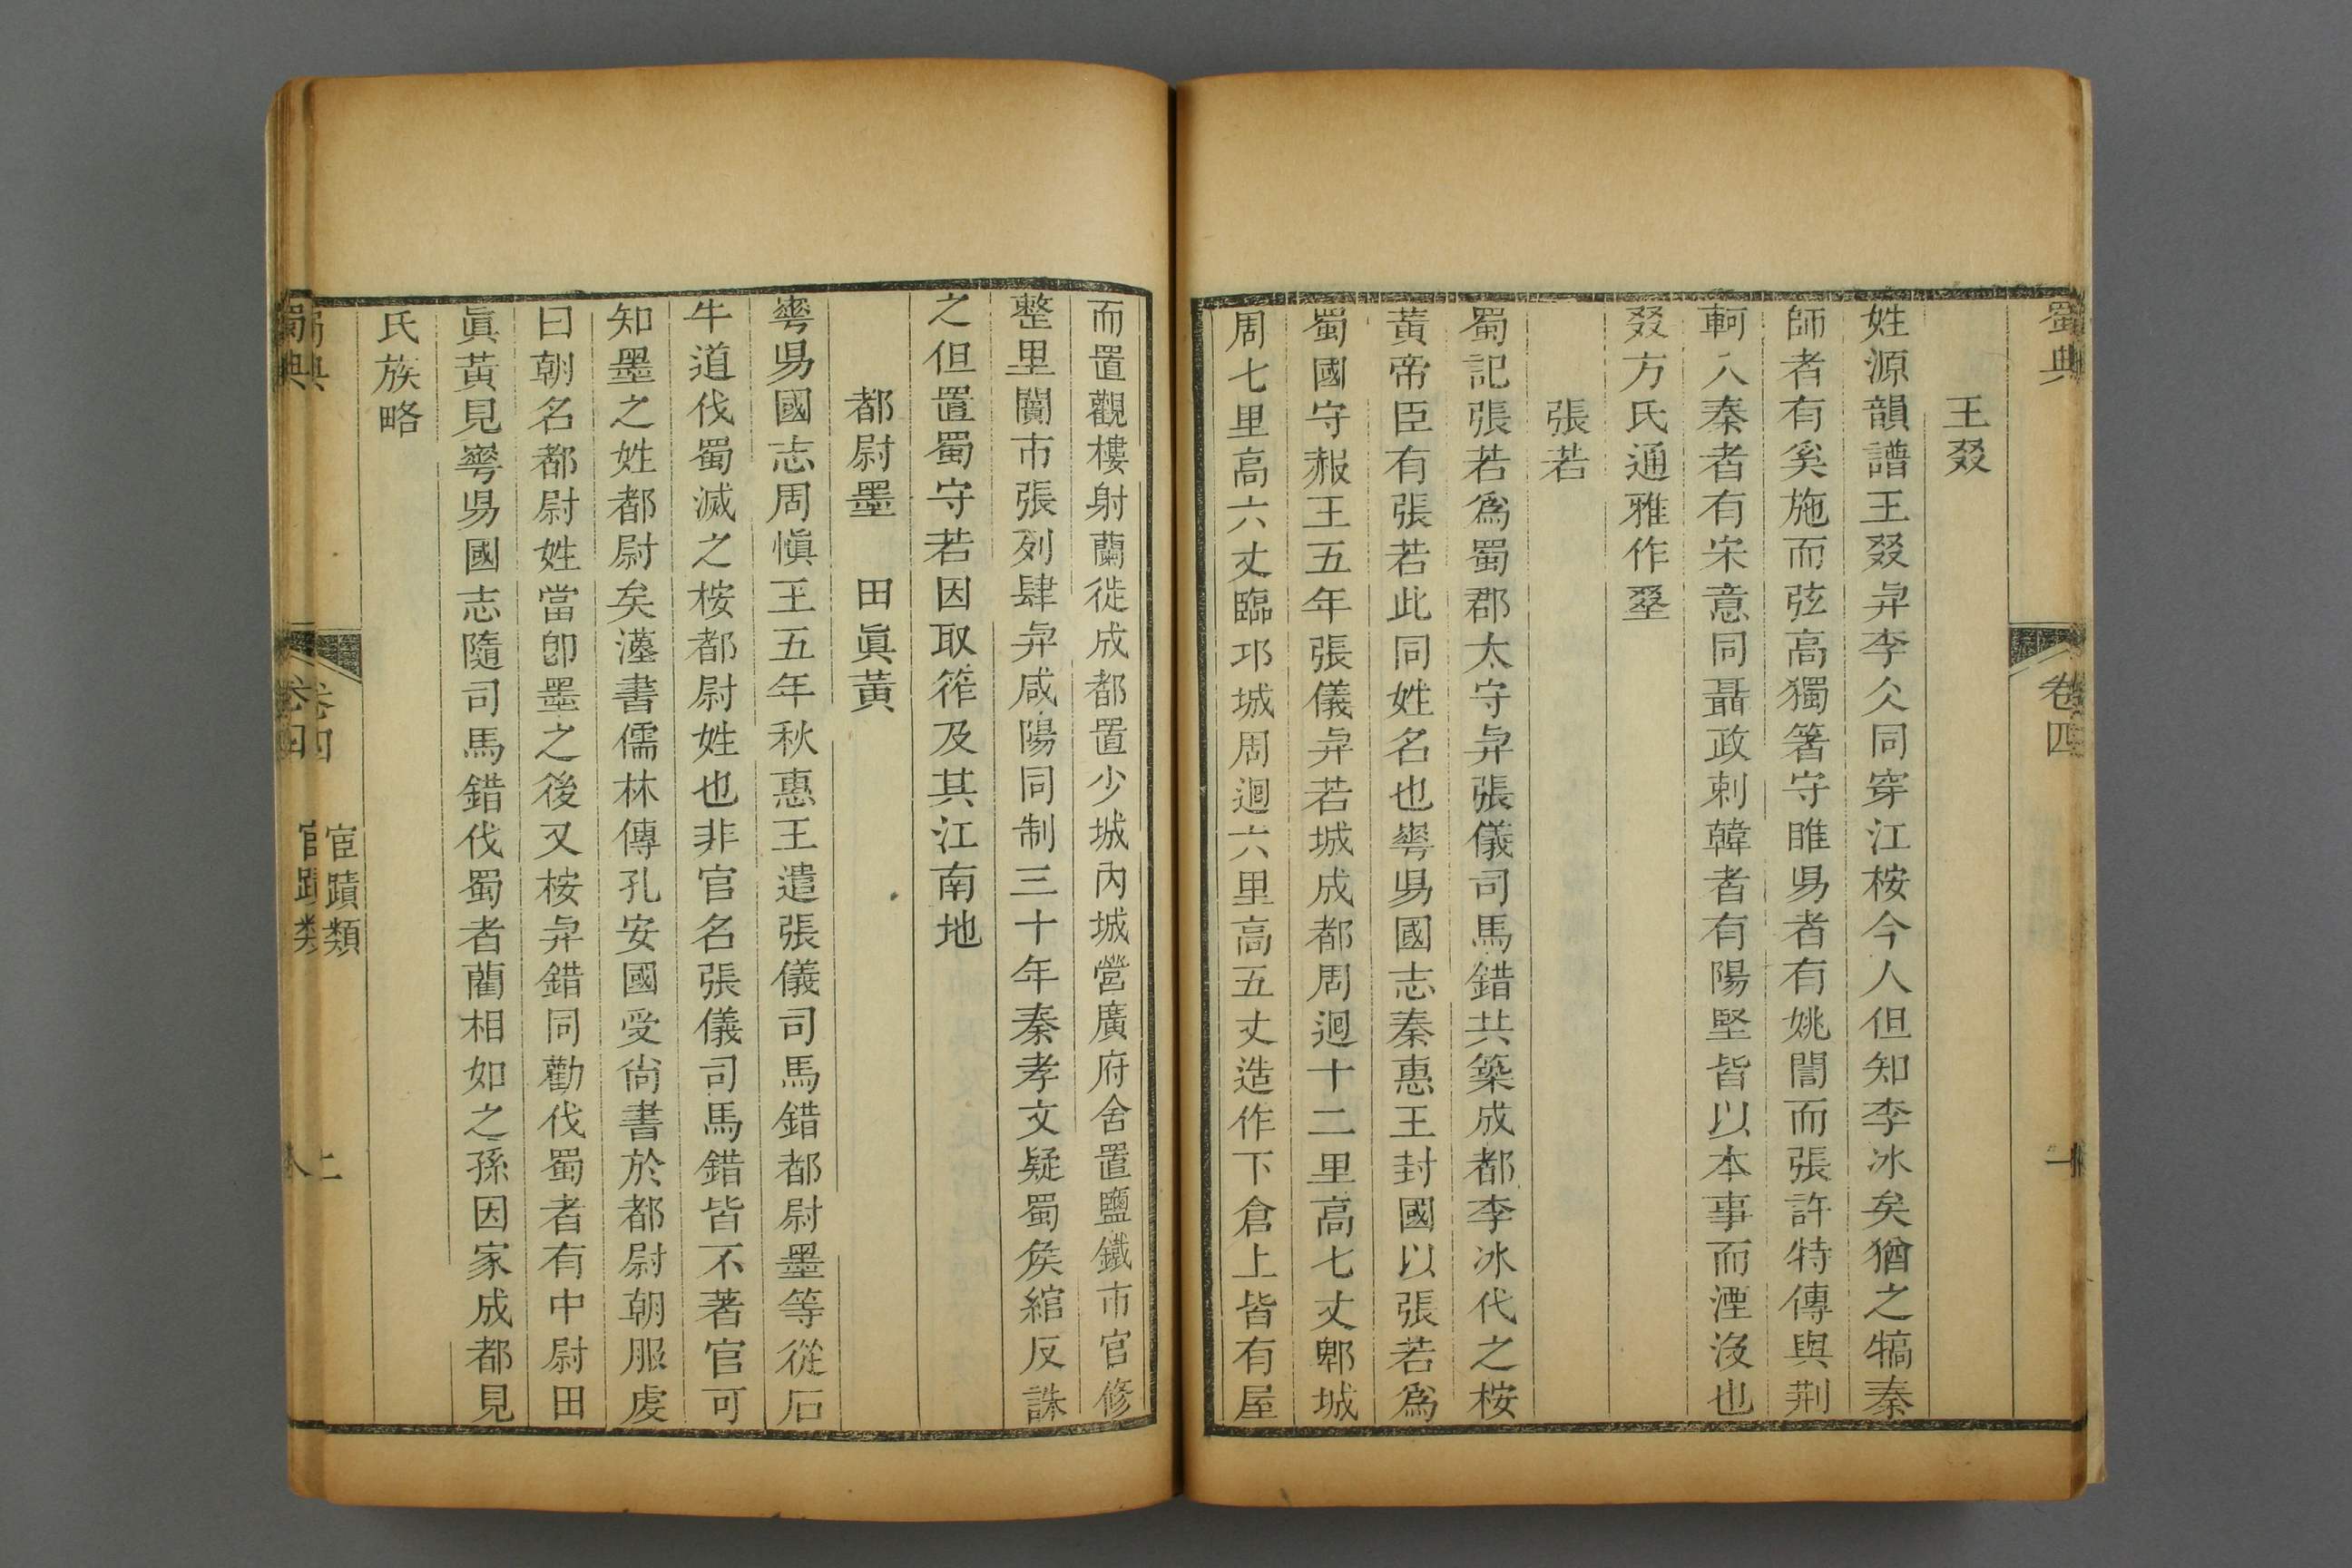 蜀典
卷四
王叕
姓源韻譜王叕㒷李仌同穿江桉今人但知李冰矣猶之犒秦
師者有奚施而弦高獨箸守睢昜者有姚誾而張許特傳與荆
軻入秦者有宋意同聶政刺韓者有陽堅皆以本事而湮沒也
叕方氏通雅作㙍
張若
蜀記張若爲蜀郡太守㒷張儀司馬錯共築成都李冰代之桉
黃帝臣有張若此同姓名也蕐昜國志秦惠王封國以張若爲
蜀國守赧王五年張儀㒷若城成都周迴十二里高七丈郫城
周七里高六丈臨邛城周迴六里高五丈造作下倉上皆有屋
而置觀樓射蘭徙成都置少城內城營廣府舍置鹽鐵市官修
整里闠市張列肆㒷咸陽同制三十年秦孝文疑蜀矦綰反誅
之但置蜀守若因取筰及其江南地
都尉墨　田眞黃
蕐昜國志周愼王五年秋惠王遣張儀司馬錯都尉墨等從石
牛道伐蜀滅之桉都尉姓也非官名張儀司馬錯皆不著官可
知墨之姓都尉矣漢書儒林傳孔安國受尙書於都尉朝服虔
曰朝名都尉姓當卽墨之後又桉㒷錯同勸伐蜀者有中尉田
眞黃見蕐昜國志隨司馬錯伐蜀者藺相如之孫因家成都見
氏族略
蜀典
卷四
宦蹟類